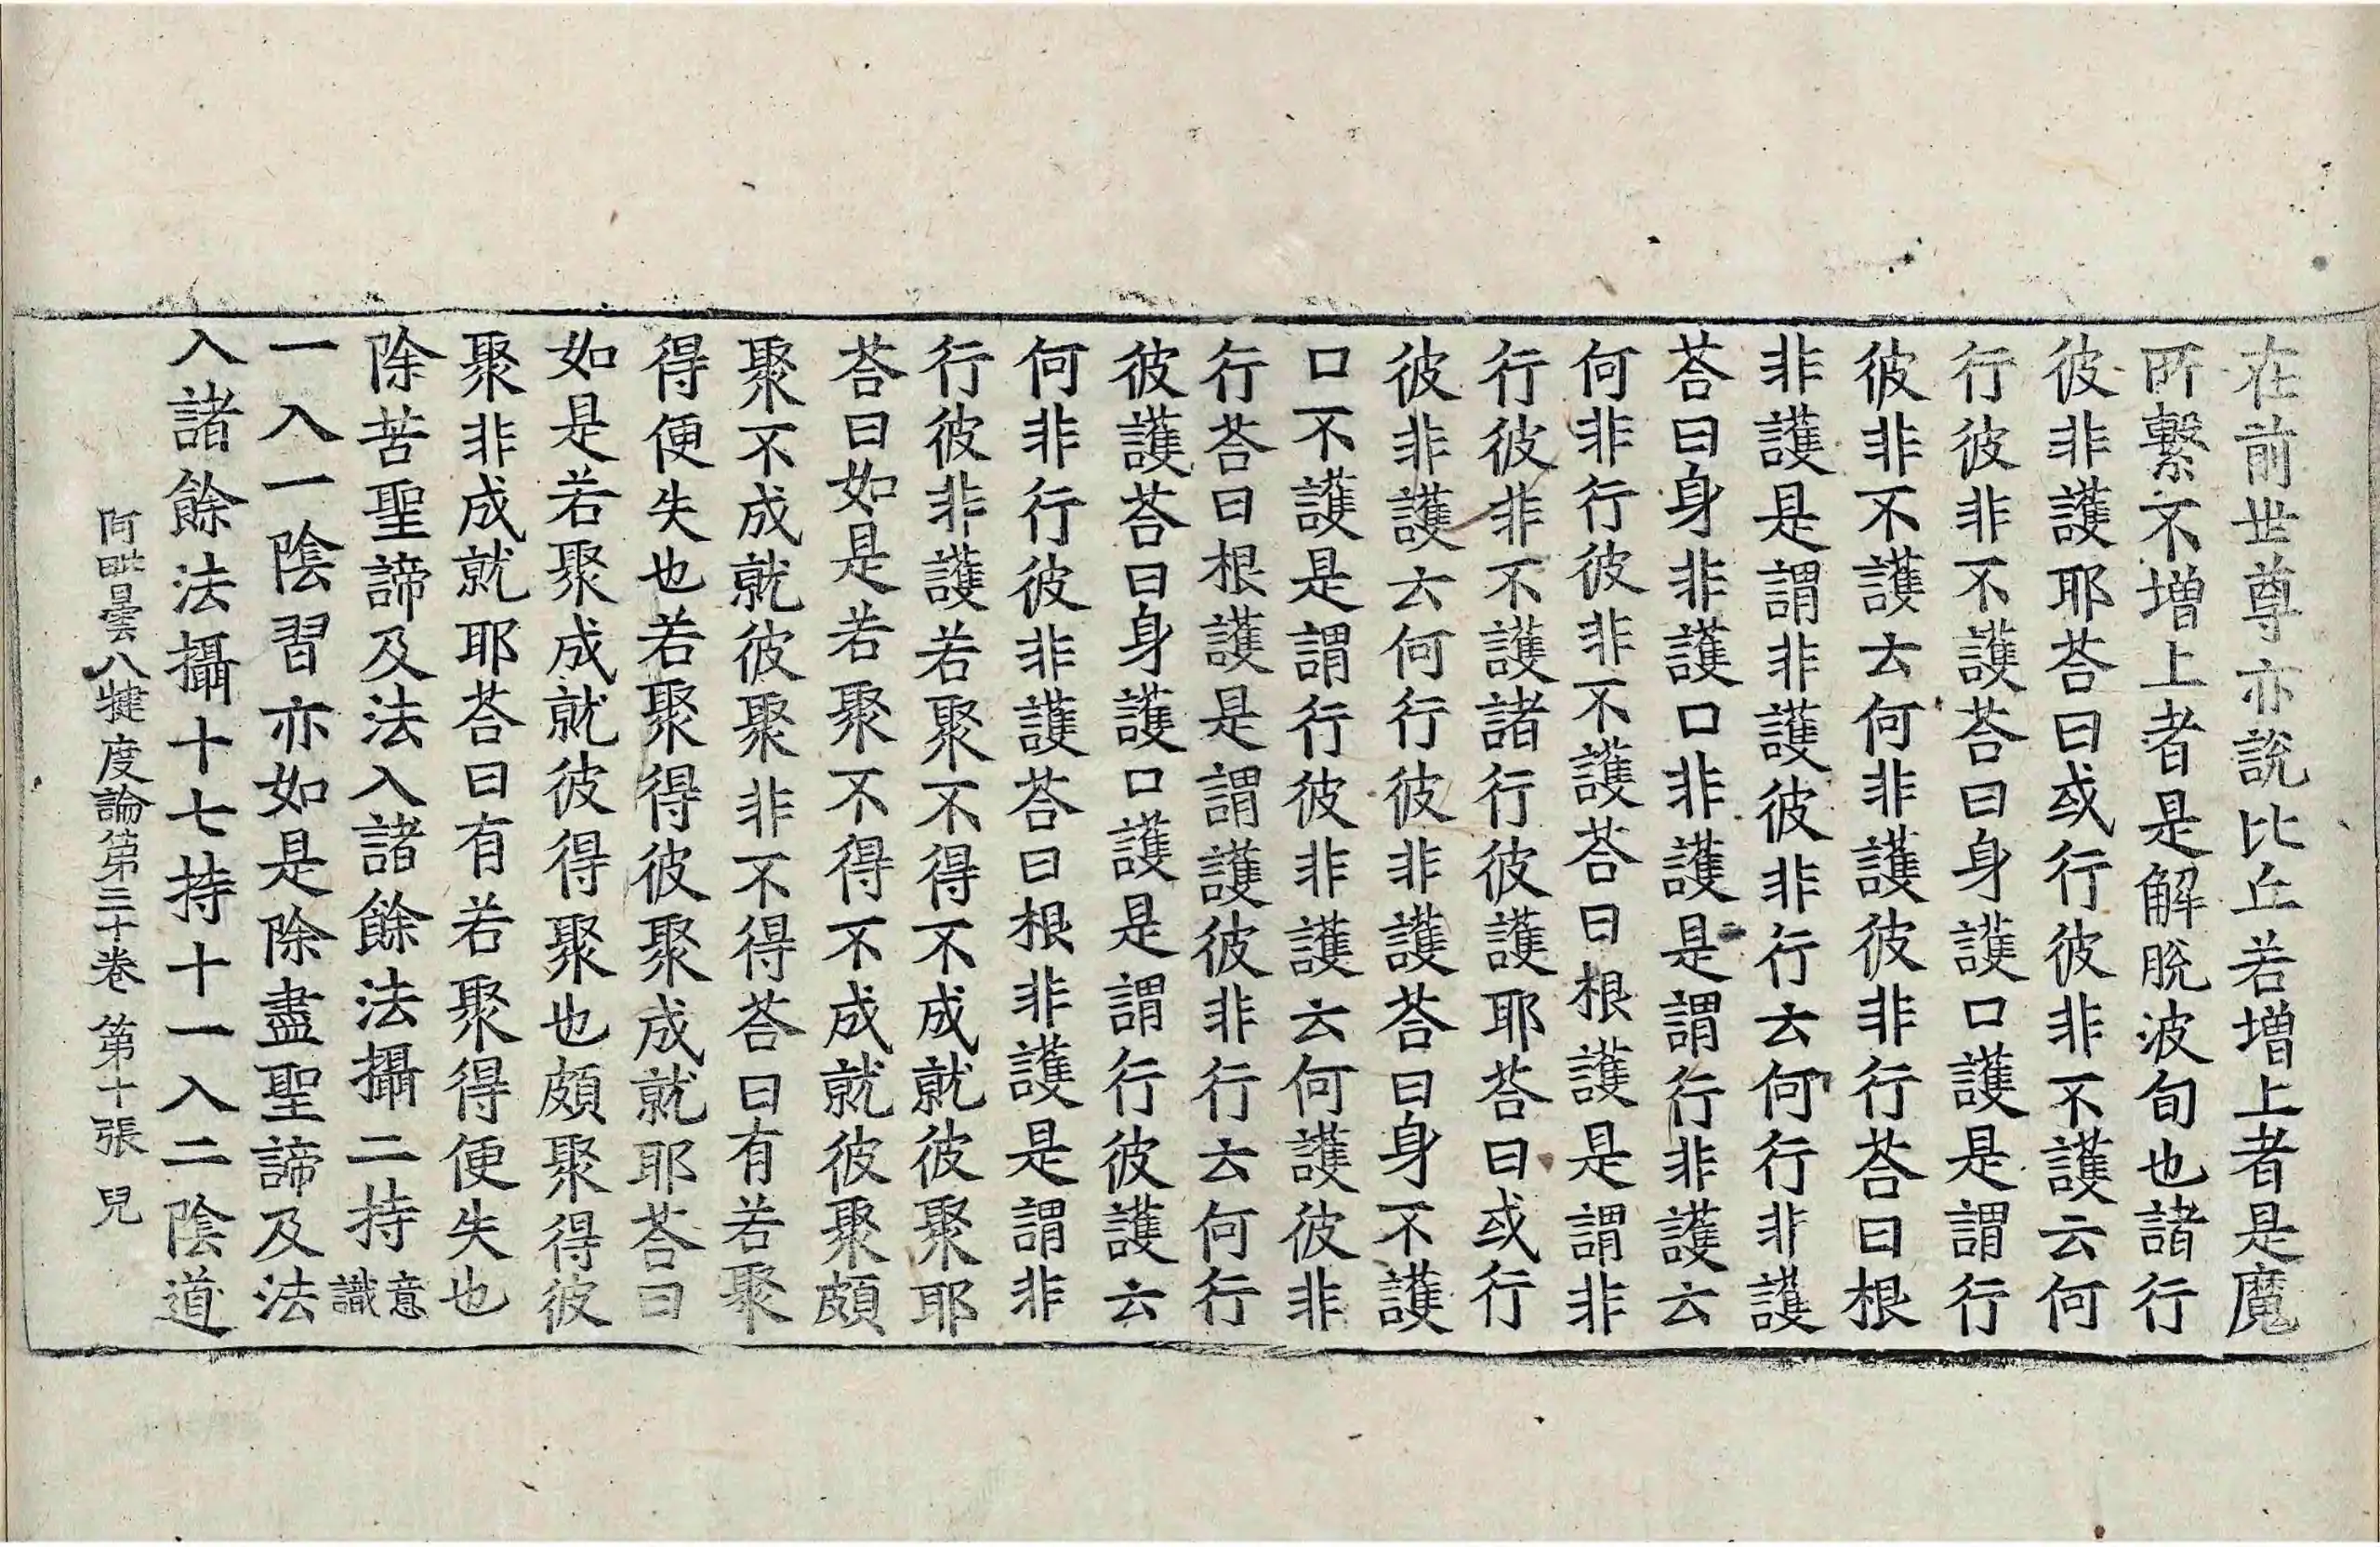 在前世尊亦說比丘若增上者是魔
所繫不增上者是解脫波旬也諸行
彼非護耶荅曰或行彼非不護云何
行彼非不護荅曰身護口護是謂行
彼非不護云何非護彼非行荅曰根
非護是謂非護彼非行云何行非護
荅曰身非護口非護是謂行非護云
何非行彼非不護荅曰根護是謂非
行彼非不護諸行彼護耶荅曰或行
彼非護云何行彼非護荅曰身不護
口不護是謂行彼非護云何護彼非
行荅曰根護是謂護彼非行云何行
彼護荅曰身護口護是謂行彼護云
何非行彼非護荅曰根非護是謂非
行彼非護若聚不得不成就彼聚耶
荅曰如是若聚不得不成就彼聚頗
聚不成就彼聚非不得荅曰有若聚
得便失也若聚得彼聚成就耶荅曰
如是若聚成就彼得聚也頗聚得彼
聚非成就耶荅曰有若聚得便失也
除苦聖諦及法入諸餘法攝二持意識
一入一陰習亦如是除盡聖諦及法
入諸餘法攝十七持十一入二陰道
阿毗曇八犍度論第三十卷 第十張 兒